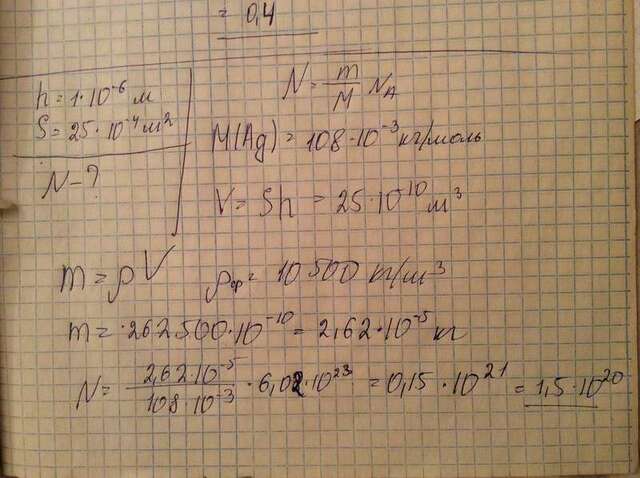 = 0,4
h = 1·10⁻⁶ м
S = 25·10⁻⁴ м²
N - ?
N = m/M N_A
M(Ag) = 108·10⁻³ кг/моль
V = Sh = 25·10⁻¹⁰ м³
m = ρV ρср = 10500 кг/м³
m = 262500·10⁻¹⁰ = 2,62·10⁻⁵ кг
N = 2,62·10⁻⁵/108·10⁻³ · 6,02·10²³ = 0,15·10²¹ = 1,5·10²⁰